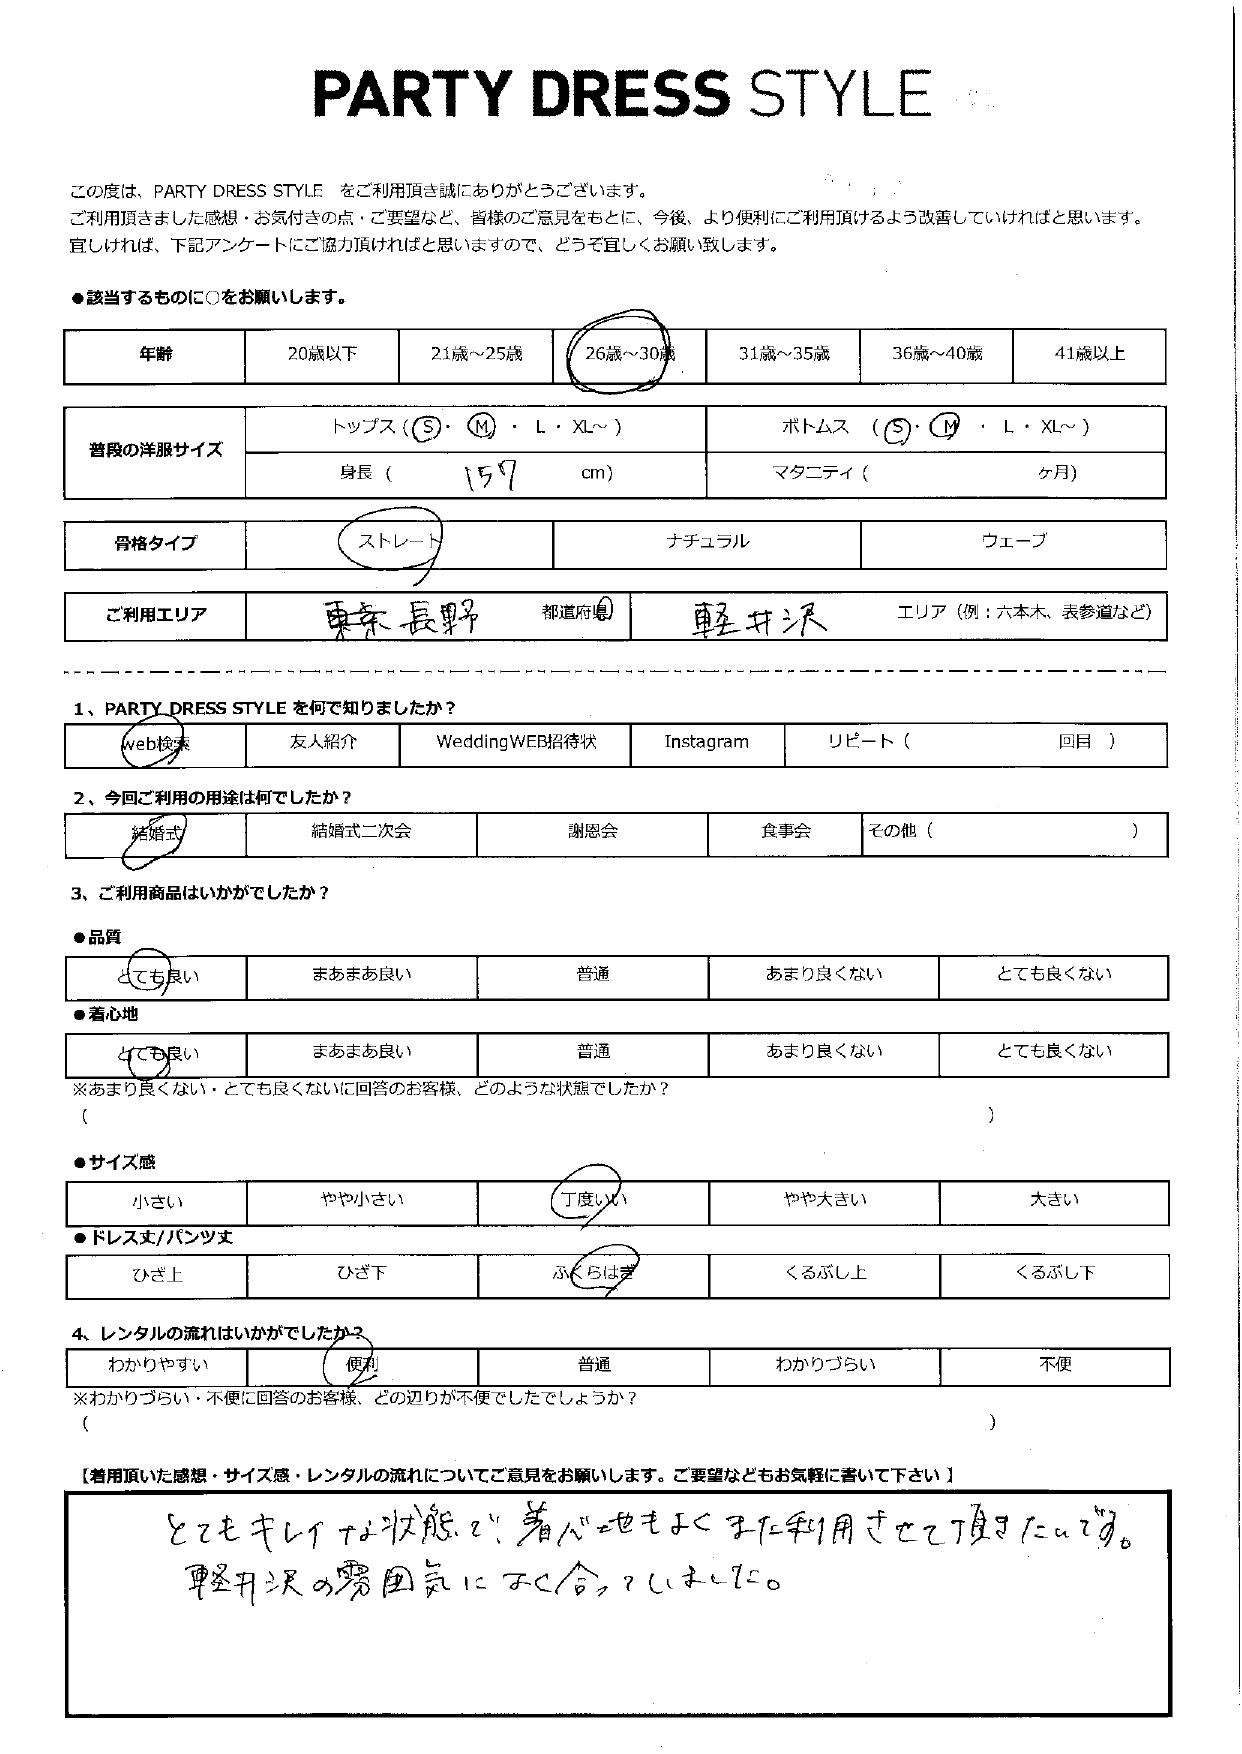 PARTY DRESS STYLE
この度は、PARTY DRESS STYLE をご利用頂き誠にありがとうございます。
ご利用頂きました感想・お気付きの点・ご要望など、皆様のご意見をもとに、今後、より便利にご利用頂けるよう改善していければと思います。
宜しければ、下記アンケートにご協力頂ければと思いますので、どうぞ宜しくお願い致します。
●該当するものに○をお願いします。
年齢 20歳以下 21歳～25歳 26歳～30歳 31歳～35歳 36歳～40歳 41歳以上
普段の洋服サイズ トップス (S・ M ・ L・ XL～ ) ボトムス (S・ M ・ L・ XL～ )
身長 ( 157 cm) マタニティ ( ヶ月)
骨格タイプ ストレート ナチュラル ウェーブ
ご利用エリア 東京 長野 都道府県 軽井沢 エリア（例：六本木、表参道など）
1、PARTY DRESS STYLE を何で知りましたか？
web検索 友人紹介 WeddingWEB招待状 Instagram リピート ( 回目 )
2、今回ご利用の用途は何でしたか？
結婚式 結婚式二次会 謝恩会 食事会 その他 ( )
3、ご利用商品はいかがでしたか？
●品質
とても良い まあまあ良い 普通 あまり良くない とても良くない
●着心地
とても良い まあまあ良い 普通 あまり良くない とても良くない
※あまり良くない・とても良くないに回答のお客様、どのような状態でしたか？
( )
●サイズ感
小さい やや小さい 丁度いい やや大きい 大きい
●ドレス丈/パンツ丈
ひざ上 ひざ下 ふくらはぎ くるぶし上 くるぶし下
4、レンタルの流れはいかがでしたか？
わかりやすい 便利 普通 わかりづらい 不便
※わかりづらい・不便に回答のお客様、どの辺りが不便でしたでしょうか？
( )
【着用頂いた感想・サイズ感・レンタルの流れについてご意見をお願いします。ご要望などもお気軽に書いて下さい 】
とてもキレイな状態で、着心地もよくまた利用させて頂きたいです。
軽井沢の雰囲気によく合っていました。